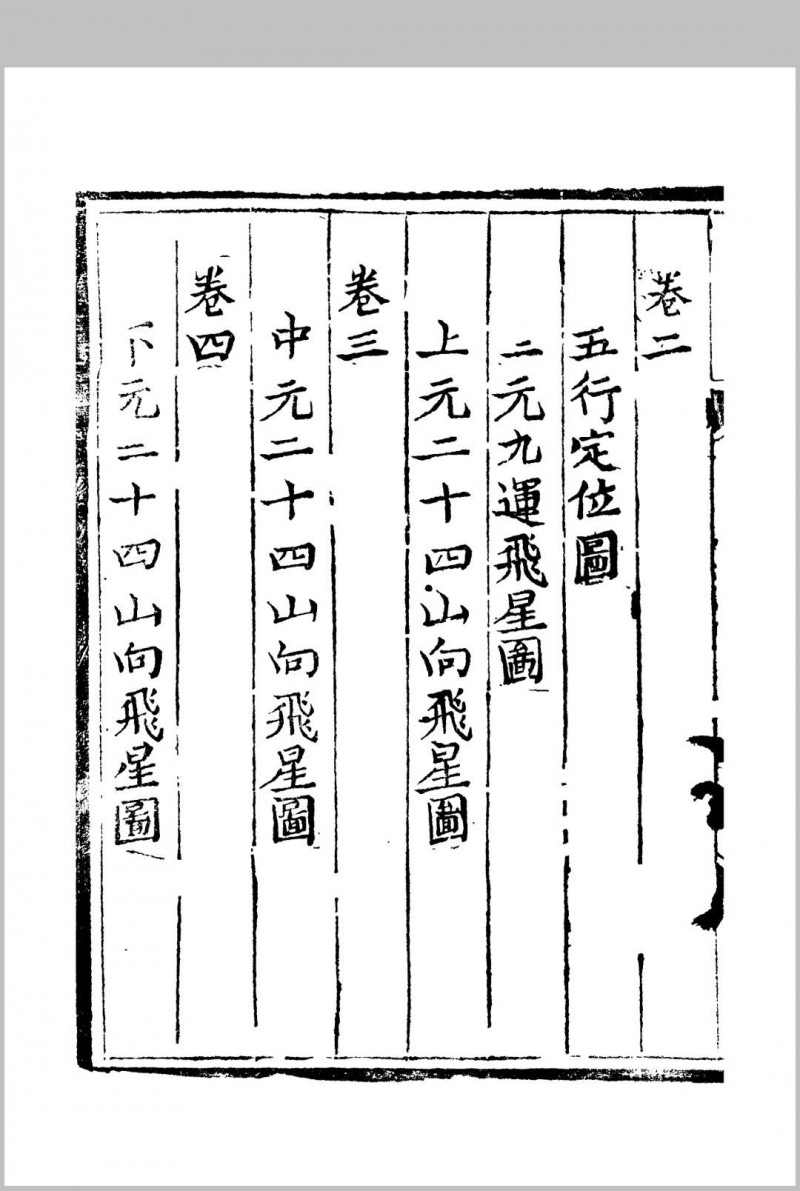 卷二
五行定位圖
二元九運飛星圖
上元二十四山向飛星圖
卷三
中元二十四山向飛星圖
卷四
下元二十四山向飛星圖